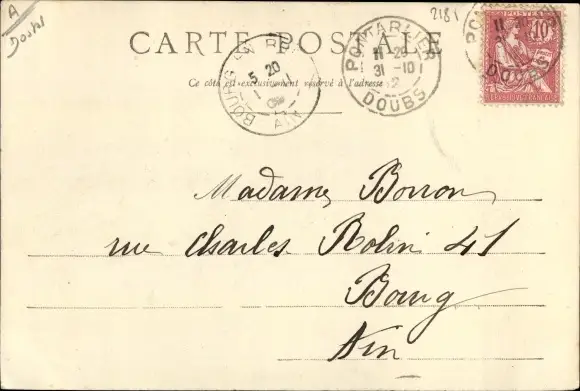 A
Doubs
2181
CARTE POSTALE
Ce côté est exclusivement réservé à l'adresse
BOURG EN BRESSE
5 20
AIN
PONTARLIER
11 20
31 -10
02
DOUBS
POSTES
10
RÉPUBLIQUE FRANÇAISE
11
DOUBS
Madame Borron
rue Charles Rolin 41
Bourg
Ain